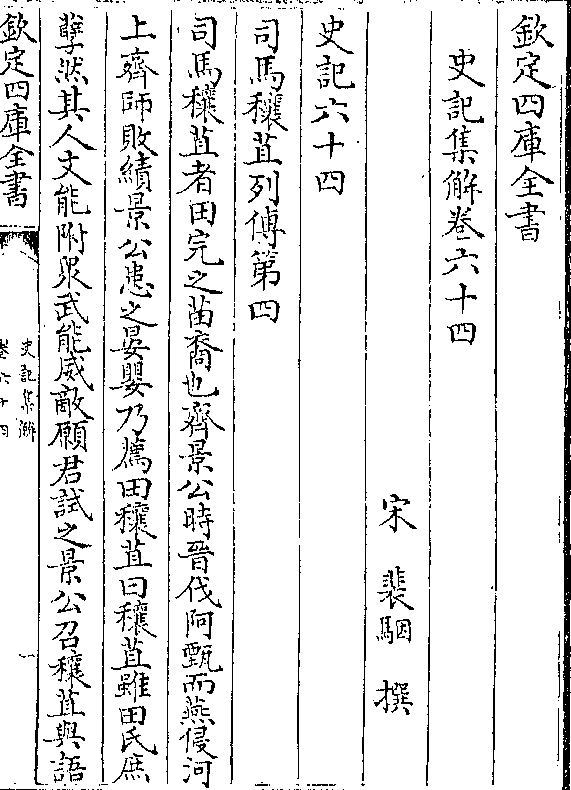 欽定四庫全書
史記集解卷六十四
宋 裴駰 撰
史記六十四
司馬穰苴列傳第四
司馬穰苴者田完之苗裔也齊景公時晉伐阿甄而燕侵河
上齊師敗績景公患之晏嬰乃薦田穰苴曰穰苴雖田氏庶
孽然其人文能附衆武能威敵願君試之景公召穰苴與語
欽定四庫全書
史記集解
卷六十四
一